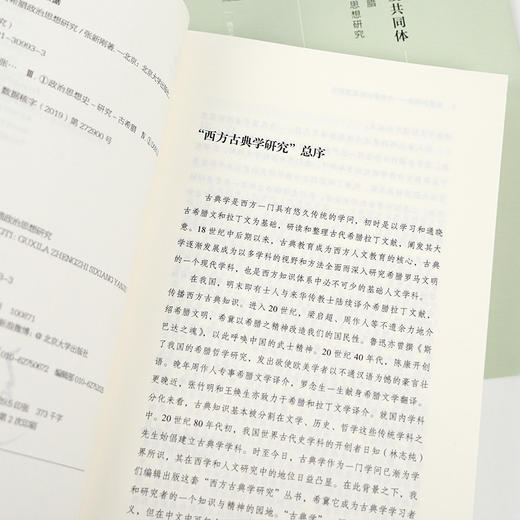 共同体
腊
思想研究
希腊政治思想研究/张新刚著.—北京:北京大学出版
-30993-3
张…
Ⅲ ①政治思想史-研究-古希腊 Ⅳ
数据核字(2019)第272900号
腊政治思想研究
CITI: GUXILA ZHENGZHI SIXIANG YANJIU
3-3
100871
新浪微博:@北京大学出版社
010-62750672 编辑部 010-
373千字
第2次印刷
“西方古典学研究”总序
古典学是西方一门具有悠久传统的学问,初时是以学习和通晓
古希腊文和拉丁文为基础,研读和整理古代希腊拉丁文献,阐发其大
意。18世纪中后期以来,古典教育成为西方人文教育的核心,古典
学逐渐发展成为以多学科的视野和方法全面而深入研究希腊罗马文明
的一个现代学科,也是西方知识体系中必不可少的基础人文学科。
在我国,明末即有士人与来华传教士陆续译介希腊拉丁文献,
传播西方古典知识。进入20世纪,梁启超、周作人等不遗余力地介
绍希腊文明,希冀以希腊之精神改造我们的国民性。鲁迅亦曾撰《斯
巴达之魂》,以此呼唤中国的武士精神。20世纪40年代,陈康开创
了我国的希腊哲学研究,发出欲使欧美学者以不通汉语为憾的豪言壮
语。晚年周作人专事希腊文学译介,罗念生一生献身希腊文学翻译。
更晚近,张竹明和王焕生亦致力于希腊和拉丁文学译介。就国内学科
分化来看,古典知识基本被分割在文学、历史、哲学这些传统学科之
中。20世纪80年代初,我国世界古代史学科的开创者日知(林志纯)
先生始倡建立古典学学科。时至今日,古典学作为一门学问已渐为学
界所识,其在西学和人文研究中的地位日益凸显。在此背景之下,我
们编辑出版这套“西方古典学研究”丛书,希冀它成为古典学学习者
和研究者的一个知识与精神的园地。“古典学”
义,但在中文中